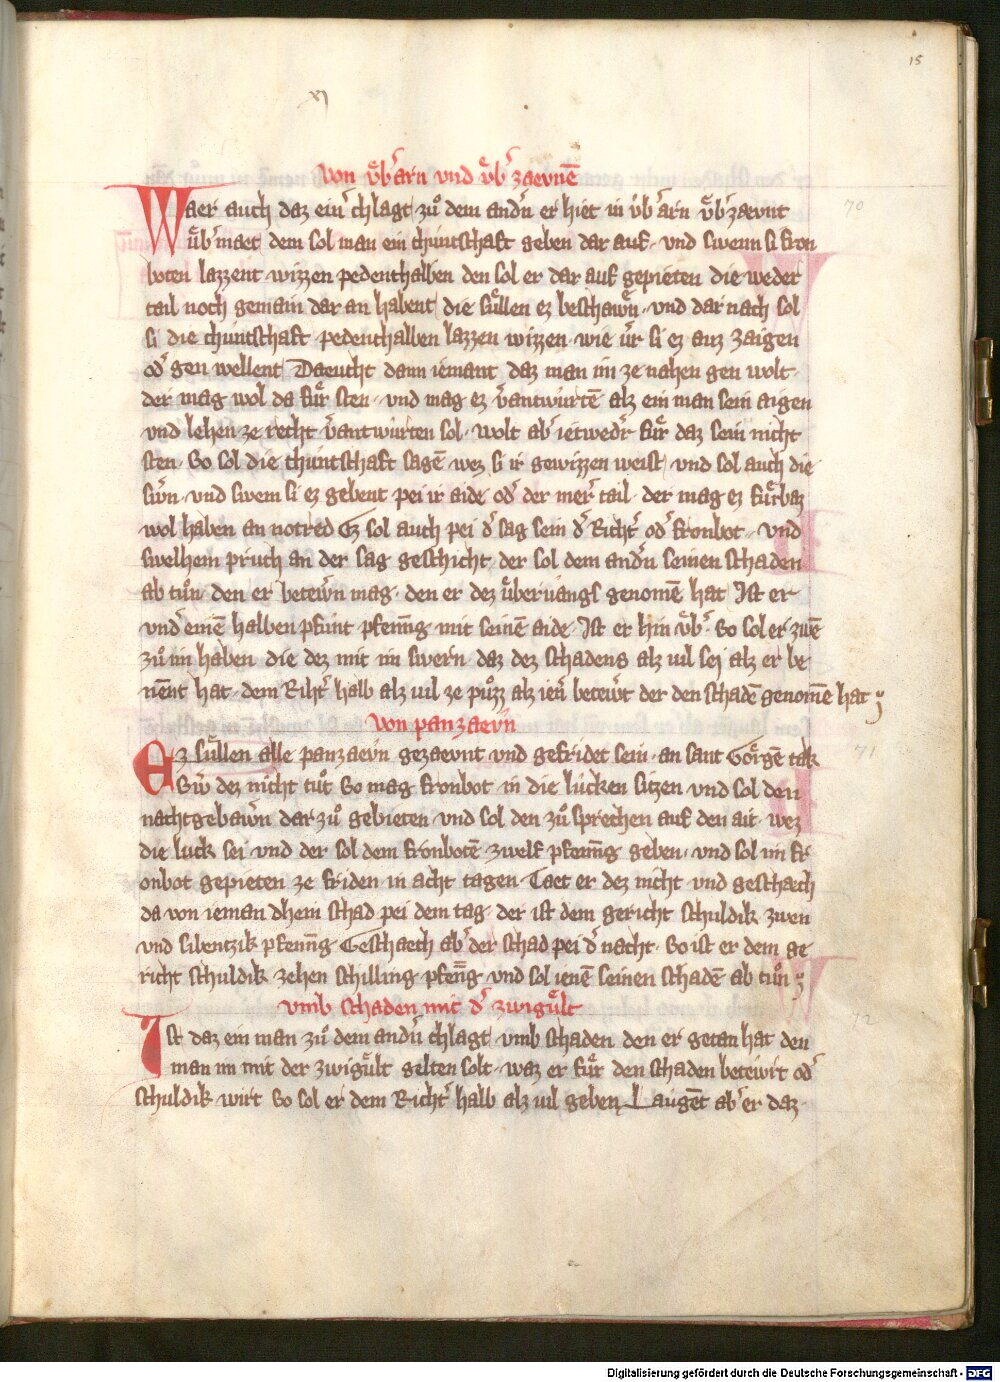 15
xj
Von v̈b͛arn vnd v̈b͛ zaevnē
Waer auch daz ein͛ chlagt zů dem and͛n er hiet in v̈b͛ arn v̈b͛zaevnt
v̈b͛maet dem sol man ein chuntschaft geben dar auf · vnd swenn si fron
boten lazzent wizzen pedenthalben den sol er dar auf gepieten die weder
tail noch gemain dar an habent die sůllen ez beschawn̄ · vnd dar nach sol
si die chuntschaft pedenthalben lazzen wizzen · wie v͛r si ez auz zaigen
od͛ gen wellent Daeucht dann iemant daz man im ze nahen gen wolt ·
der mag wol da für sten · vnd mag ez v͛antwurtē alz ein man sein aigen
vnd lehen ze recht v͛antwurten sol · wolt ab͛ ietwed͛r für daz sein nicht
sten · So sol die chuntschaft sagē wez si ir gewizzen weist · vnd sol auch die
sw͛n · vnd swem si ez gebent pei ir aide od͛ der mer͛ tail · der mag ez fürbaz
wol haben an notred Ez sol auch pei d͛ sag sein d͛ Richt͛ od͛ fronbot · vnd
swelhem pruch an der sag geschicht · der sol dem and͛n seinen schaden
ab tůn · den er betew͛n mag · den er dez v̈beruangs genomē hat Ist er
vnd͛ einē halben pfunt pfenn̄g · mit seinē aide · Ist er hin v̈b͛ · So sol er zwē
zů im haben die dez mit im swern · daz dez schadens alz uil sei alz er be
nēnt hat · dem Riht͛ halb alz uil ze půzz alz ien͛ betew͛t der den schadē genomē hat
Von panzaev̄n
Ez sůllen alle panzaev̄n gezaevnt vnd gefridet sein · an sant Görgē tak
Sw͛ dez nicht tůt So mag fronbot in die lucken sitzen vnd sol den
nachtgebawn̄ dar zů gebieten · vnd sol den zů sprechen auf den ait · wez
die luck sei vnd der sol dem fronbotē zwelf pfenn̄g geben · vnd sol im fr
onbot gepieten ze friden in acht tagen · Taet er dez nicht vnd geschaech
da von ieman dhein schad pei dem tag · der ist dem gericht schuldik zwen
vnd sibentzik pfenn̄g · Geschaech ab͛ der schad pei d͛ nacht · So ist er dem ge
richt schuldik zehen schilling pfen̄g vnd sol ienē seinen schadē ab tůn
vmb schaden mit d͛ zwigült
Ist daz ein man zů dem and͛n chlagt vmb schaden den er getan hat den
man im mit der zwigült gelten solt · waz er für den schaden betewrt od͛
schuldik wirt So sol er dem Richt͛ halb alz uil geben Laugēt ab͛ er daz ·
70
71
72
Digitalisierung gefördert durch die Deutsche Forschungsgemeinschaft - DFG